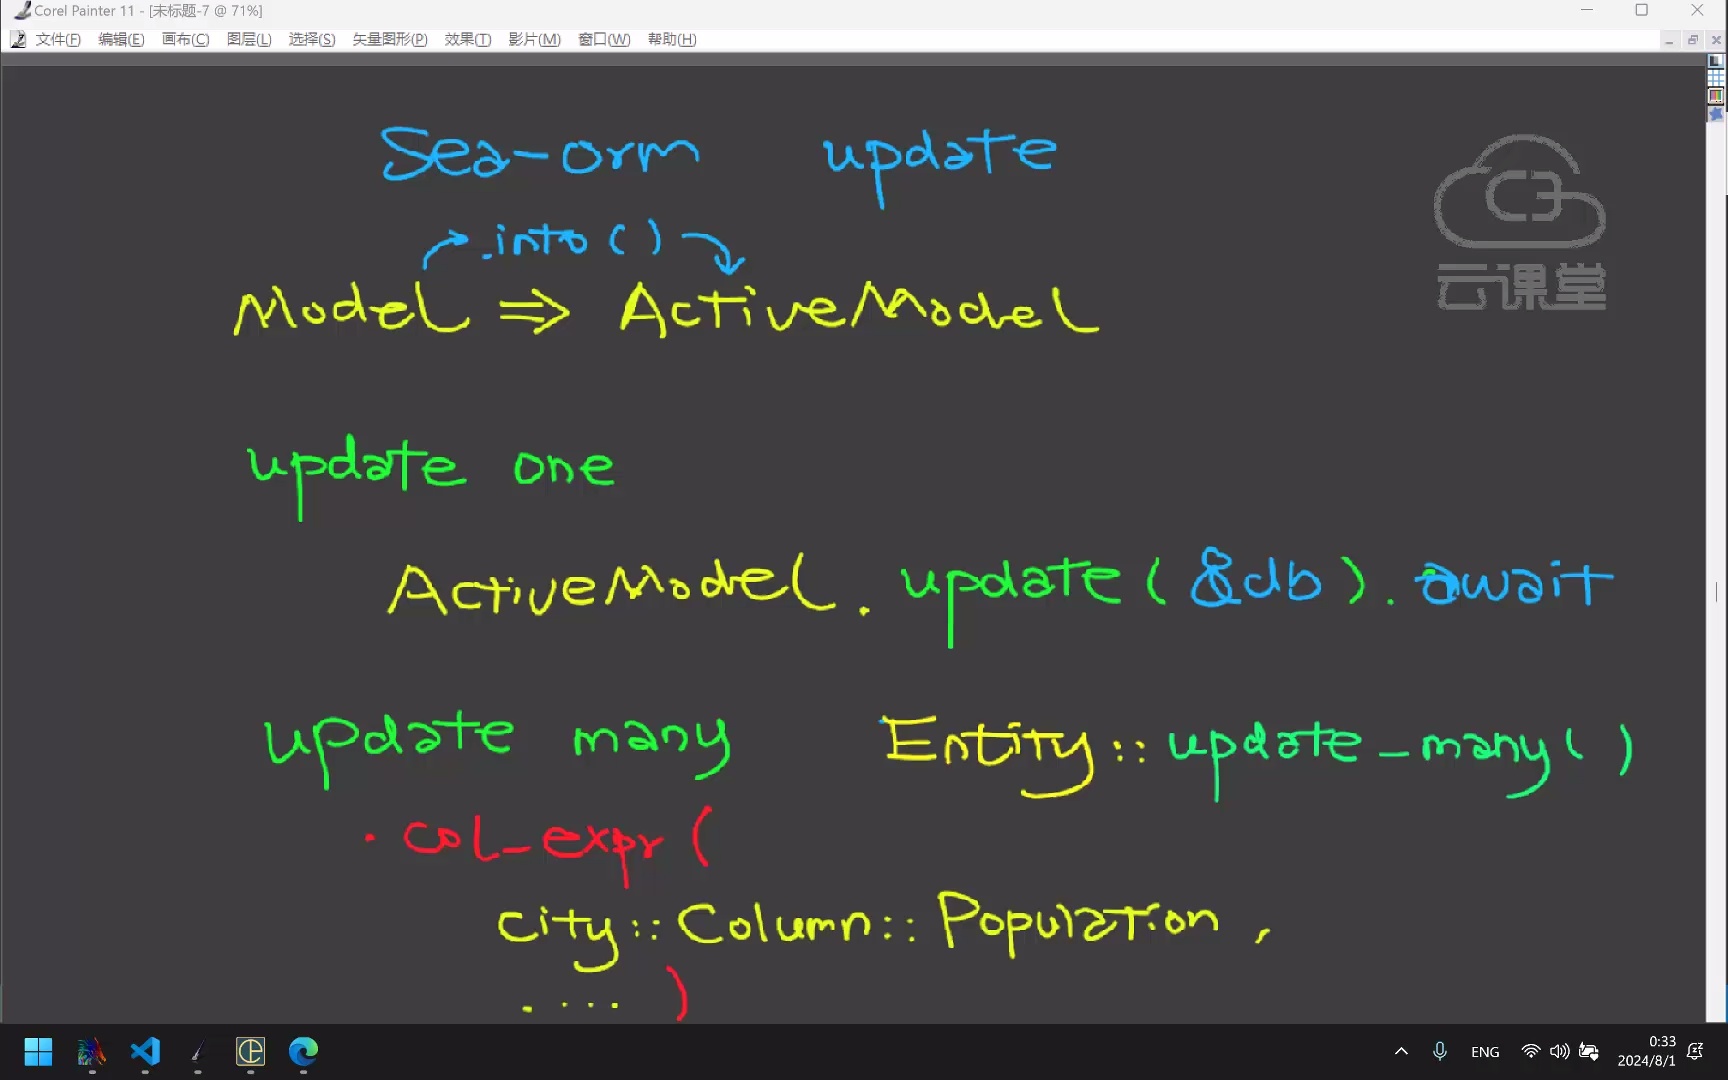 Corel Painter 11 - [未标题-7 @ 71%]
文件(F) 编辑(E) 画布(C) 图层(L) 选择(S) 矢量图形(P) 效果(T) 影片(M) 窗口(W) 帮助(H)
Sea-orm update
.into()
Model ⇒ ActiveModel
云课堂
update one
ActiveModel.update(&db).await
update many Entity::update_many()
.col_expr(
city::Column::Population,
.... )
ENG
0:33
2024/8/1